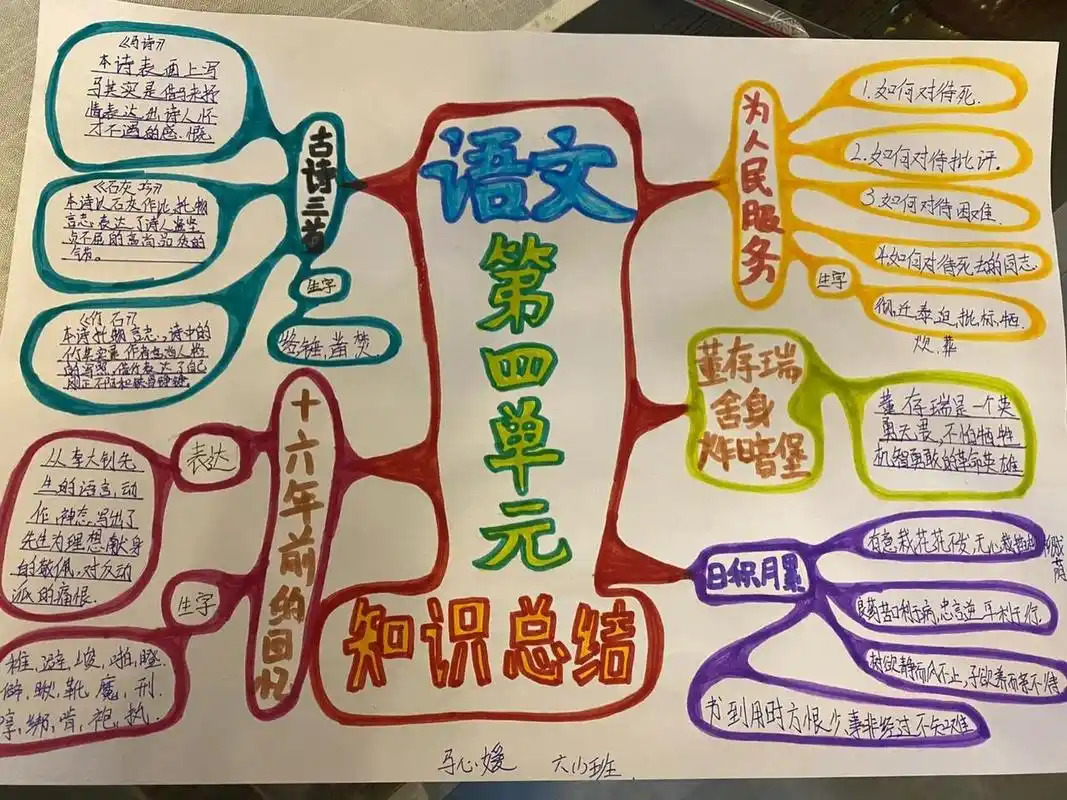 语文
第四单元
知识总结
古诗三首
《马诗》
本诗表面上写
马其实是借马来抒
情表达出诗人怀
才不遇的感慨
《石灰吟》
本诗以石灰作比托物
言志表达了诗人
不屈的高尚品质的
气节。
《竹石》
本诗托物言志，诗中的
竹其实是作者
了自己
生字
络锤，凿焚
十六年前的回忆
表达
从李大钊先
生的语言，动
作，神态，写出了
先生为理想献身
的敬佩，对反动
派的痛恨.
生字
稚，避，峻，啪，瞪.
僻，瞅，靴，魔，刑.
哼，绑，啃，袍，执.
为人民服务
1.如何对待死.
2.如何对待批评.
3.如何对待困难.
4.如何对待死去的同志.
生字
彻，迁，泰，迫，批，标，牺
炊，葬
董存瑞
舍身
炸暗堡
董存瑞是一个英
勇无畏，不怕牺牲
机智勇敢的革命英雄
日积月累
有意栽花花不发，无心栽柳柳
成荫
良药苦口利于病，忠言逆耳利于行.
树欲静而风不止，子欲养而亲不待
书到用时方恨少，事非经过不知难
马心媛 六(1)班